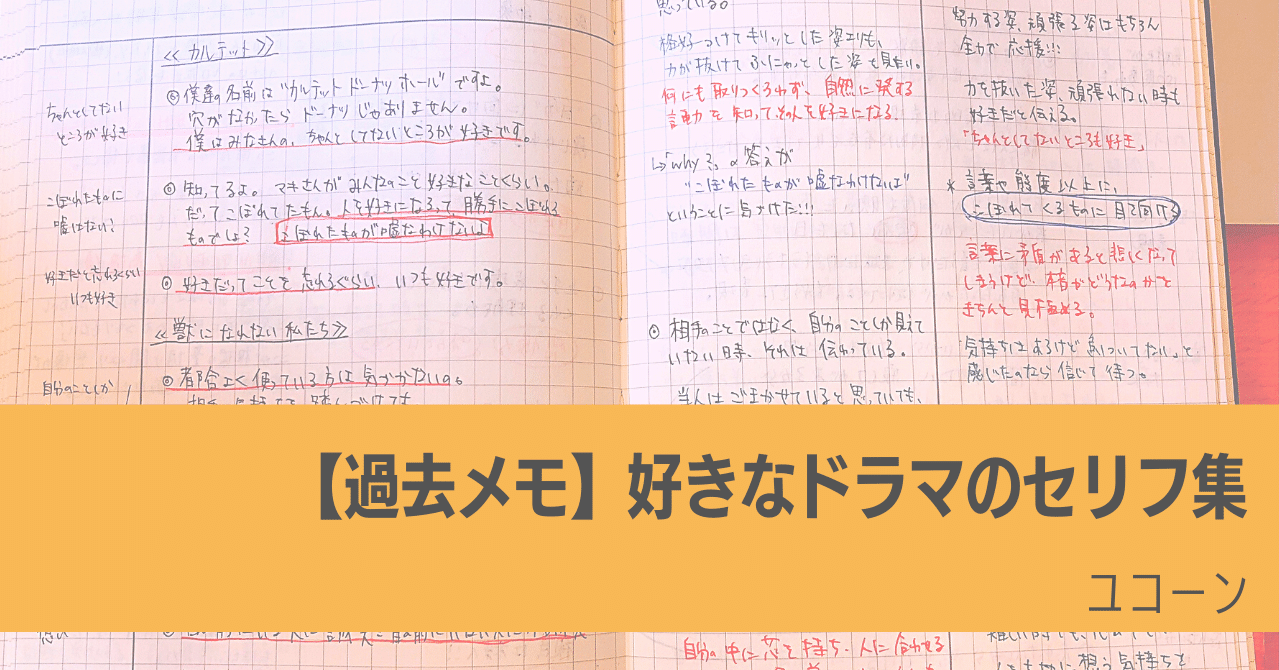 ≪カルテット≫
ちゃんとしてない
ところが好き
◎僕達の名前は"カルテットドーナツホール"ですよ。
穴がなかったらドーナツじゃありません。
僕はみなさんの、ちゃんとしてないところが好きです。
こぼれたものに
嘘はない!
◎知ってるよ。マキさんがみんなのこと好きなことくらい。
だってこぼれてたもん。人を好きになるって、勝手にこぼれる
ものでしょ?こぼれたものが嘘なわけないよ
好きだと忘れるくらい
いつも好き
◎好きだってことを忘れるぐらい、いつも好きです。
≪獣になれない私たち≫
自分のことしか
◎都合よく使っている方は気づかないの。
思っている。
格好つけてキリッとした姿よりも、
力が抜けてふにゃっとした姿を見たい。
何にも取りつくろわず、自然に発する
言動を知ってその人を好きになる。
↳「why?」の答えが
"こぼれたものが嘘なわけないよ"
ということに気づけた!!!
◎相手のことではなく、自分のことしか見えて
いない時、それは伝わっている。
当人はごまかせていると思っていても、
努力する姿、頑張る姿はもちろん
全力で応援!!!
力を抜いた姿、頑張れない時も
好きだと伝える。
「ちゃんとしてないところも好き」
*言葉や態度以上に、
こぼれてくるものに目を向ける
言葉に矛盾があると悲しくなって
しまうけど、本音がどうなのかを
きちんと見極める。
「気持ちはあるけど追いついてない」と
感じたのなら信じて待つ。
【過去メモ】好きなドラマのセリフ集
ユコーン
自分の中に芯を持ち、人に合わせる